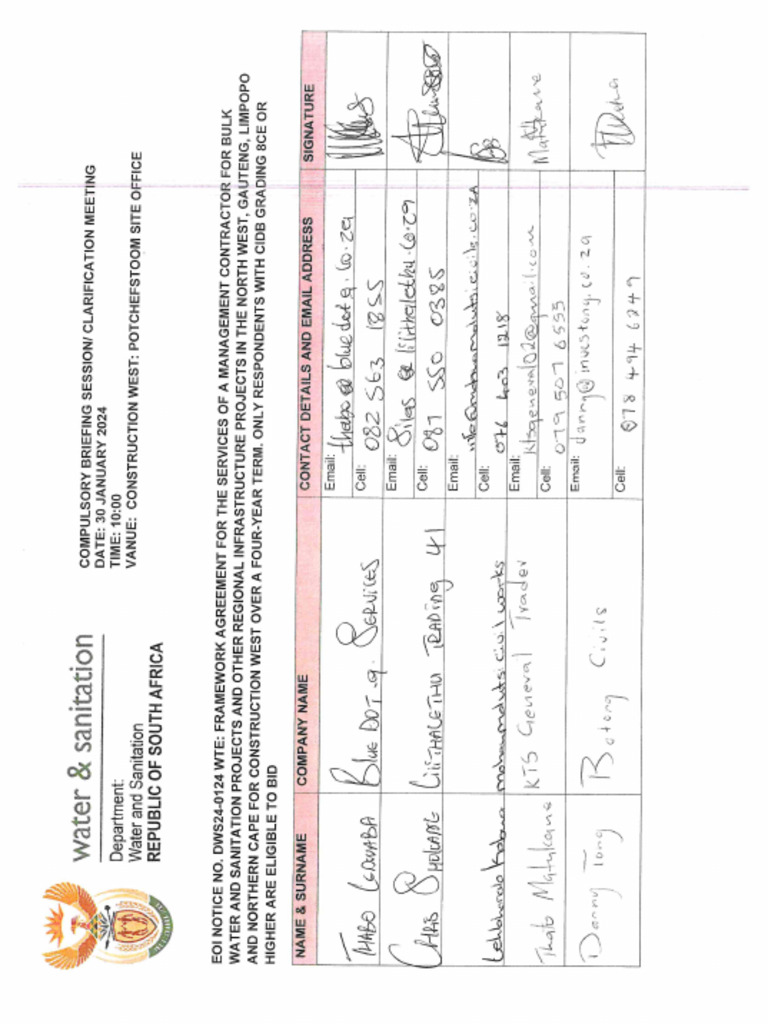 water & sanitation
Department:
Water and Sanitation
REPUBLIC OF SOUTH AFRICA
COMPULSORY BRIEFING SESSION/ CLARIFICATION MEETING
DATE: 30 JANUARY 2024
TIME: 10:00
VANUE: CONSTRUCTION WEST: POTCHEFSTOOM SITE OFFICE
EOI NOTICE NO. DWS24-0124 WTE: FRAMEWORK AGREEMENT FOR THE SERVICES OF A MANAGEMENT CONTRACTOR FOR BULK
WATER AND SANITATION PROJECTS AND OTHER REGIONAL INFRASTRUCTURE PROJECTS IN THE NORTH WEST, GAUTENG, LIMPOPO
AND NORTHERN CAPE FOR CONSTRUCTION WEST OVER A FOUR-YEAR TERM. ONLY RESPONDENTS WITH CIDB GRADING 8CE OR
HIGHER ARE ELIGIBLE TO BID
NAME & SURNAME COMPANY NAME CONTACT DETAILS AND EMAIL ADDRESS SIGNATURE
THABO BLUE DOT .q. SERVICES Email: thabo@bluedotq.co.za
Cell: 082 563 1855
CHRIS LILITHALETHU TRADING 41 Email: Silas@lilithalethu.co.za
Cell: 081 550 0385
civil works Email:
Cell: 076 403 1218
Thato Matukane KTS General Trader Email: ktsgeneral02@gmail.com
Cell: 079 507 6555 Matukane
Danny Tong Boteng Civils Email: danny@investeng.co.za
Cell: 078 494 6249